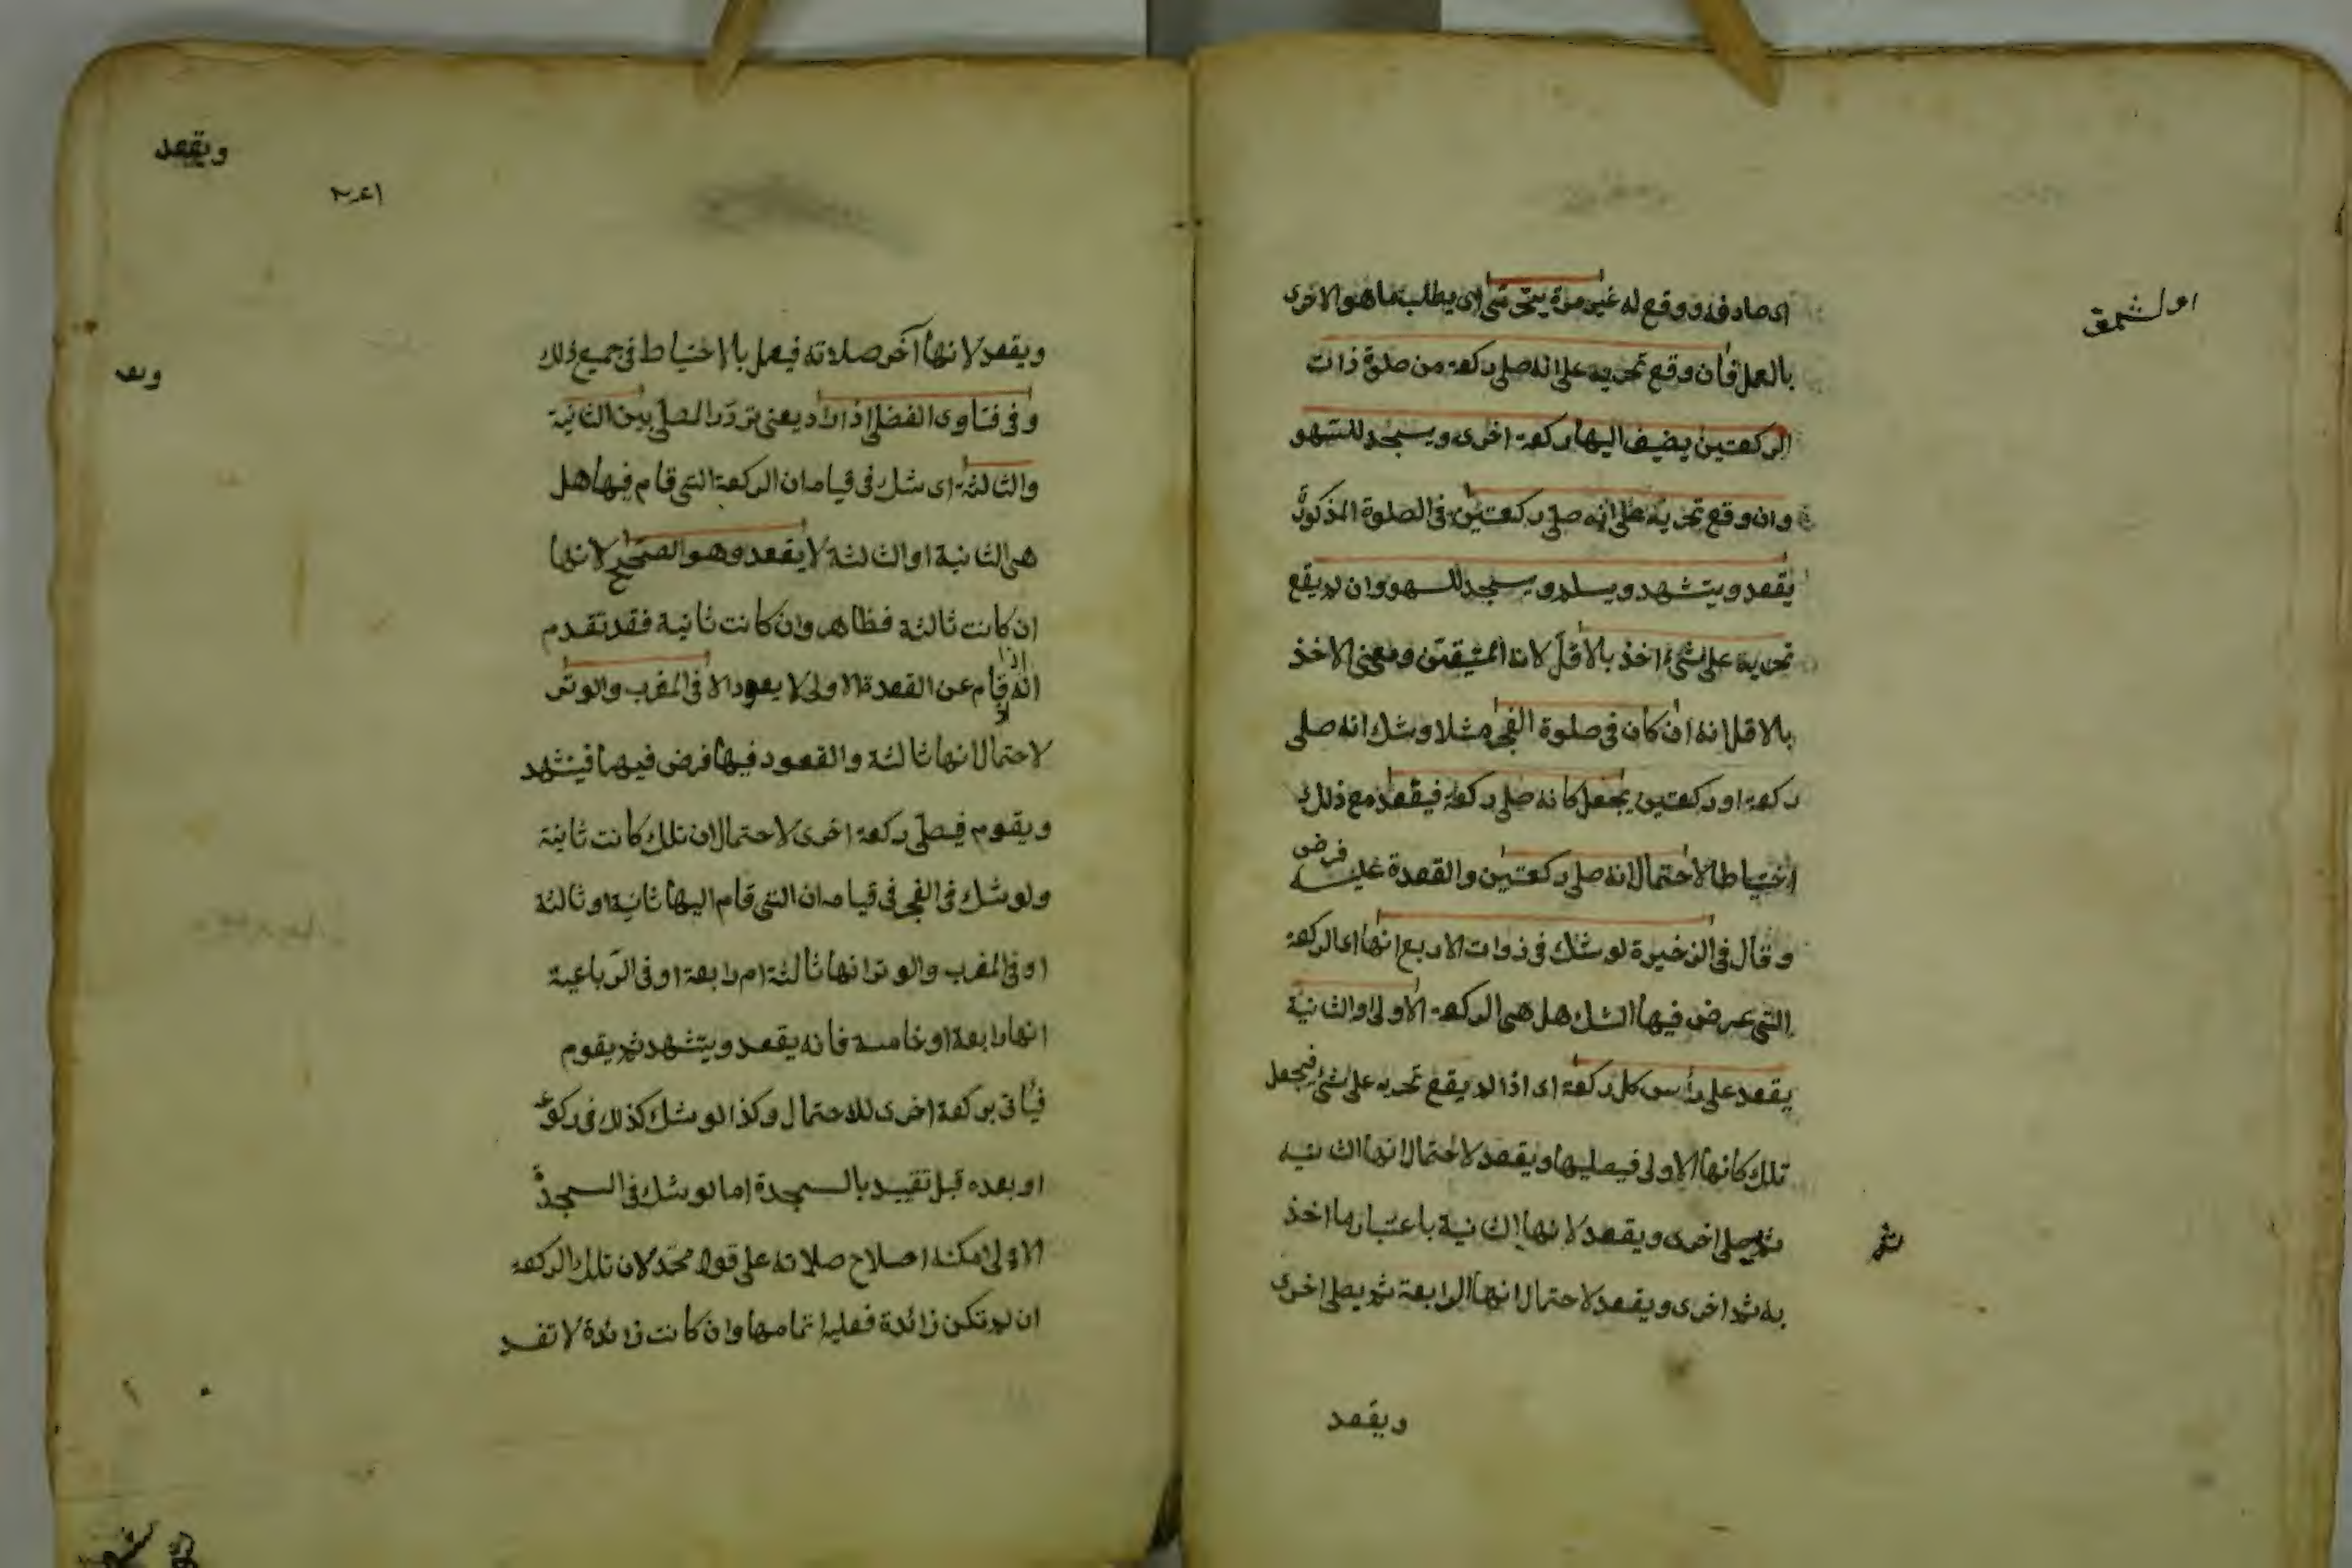 اى صادفه ووقع له غير مرة يتحرى اى يطلب ما هو الاحرى
بالعمل فان وقع تحريه على انه صلى ركعة من صلوة ذات
الركعتين يضيف اليها ركعة اخرى ويسجد للسهو
وان وقع تحريه على انه صلى ركعتين فى الصلوة المذكورة
يقعد ويتشهد ويسلم ويسجد للسهو وان لم يقع
تحريه على شئ اخذ بالاقل لانه المتيقن ومعنى الاخذ
بالاقل انه ان كان فى صلوة الفجر مثلا وشك انه صلى
ركعة او ركعتين يجعل كانه صلى ركعة فيقعد مع ذلك
احتياطا لاحتمال انه صلى ركعتين والقعدة عليه فرض
وقال فى الذخيرة لو شك فى ذوات الاربع انها اى الركعة
التى عرض فيها الشك هل هى الركعة الاولى او الثانية
يقعد على رأس كل ركعة اى اذا لم يقع تحريه على شئ فيجعل
تلك كانها الاولى فيصليها ويقعد لاحتمال انها الثانية
ثم يصلى اخرى ويقعد لانها الثانية باعتبار ما اخذ
ثم
به ثم اخرى ويقعد لاحتمال انها الرابعة ثم يصلى اخرى
ويقعد
ويقعد
ويقعد لانها آخر صلاته فيعمل بالاحتياط فى جميع ذلك
وفى فتاوى الفضلى اذا يعنى تردد المصلى بين الثانية
والثالثة اى شك فى قيامه ان الركعة التى قام فيها هل
هى الثانية او الثالثة لا يقعد وهو الصحيح لانها
ان كانت ثالثة فظاهر وان كانت ثانية فقد تقدم
انه اذا قام عن القعدة الاولى لا يعود الا فى المغرب والوتر
لاحتمال انها ثالثة والقعود فيها فرض فيهما فيتشهد
ويقوم فيصلى ركعة اخرى لاحتمال ان تلك كانت ثانية
ولو شك فى الفجر فى قيامه ان التى قام اليها ثانية او ثالثة
او فى المغرب والوتر انها ثالثة ام رابعة او فى الرباعية
انها رابعة او خامسة فانه يقعد ويتشهد ثم يقوم
فيأتى بركعة اخرى للاحتمال وكذا لو شك كذلك فى ركوعه
او بعده قبل تقييد بالسجدة اما لو شك فى السجدة
الاولى امكنه اصلاح صلاته على قول محمد لان تلك الركعة
ان لم تكن زائدة فعليه اتمامها وان كانت زائدة لا تفسد